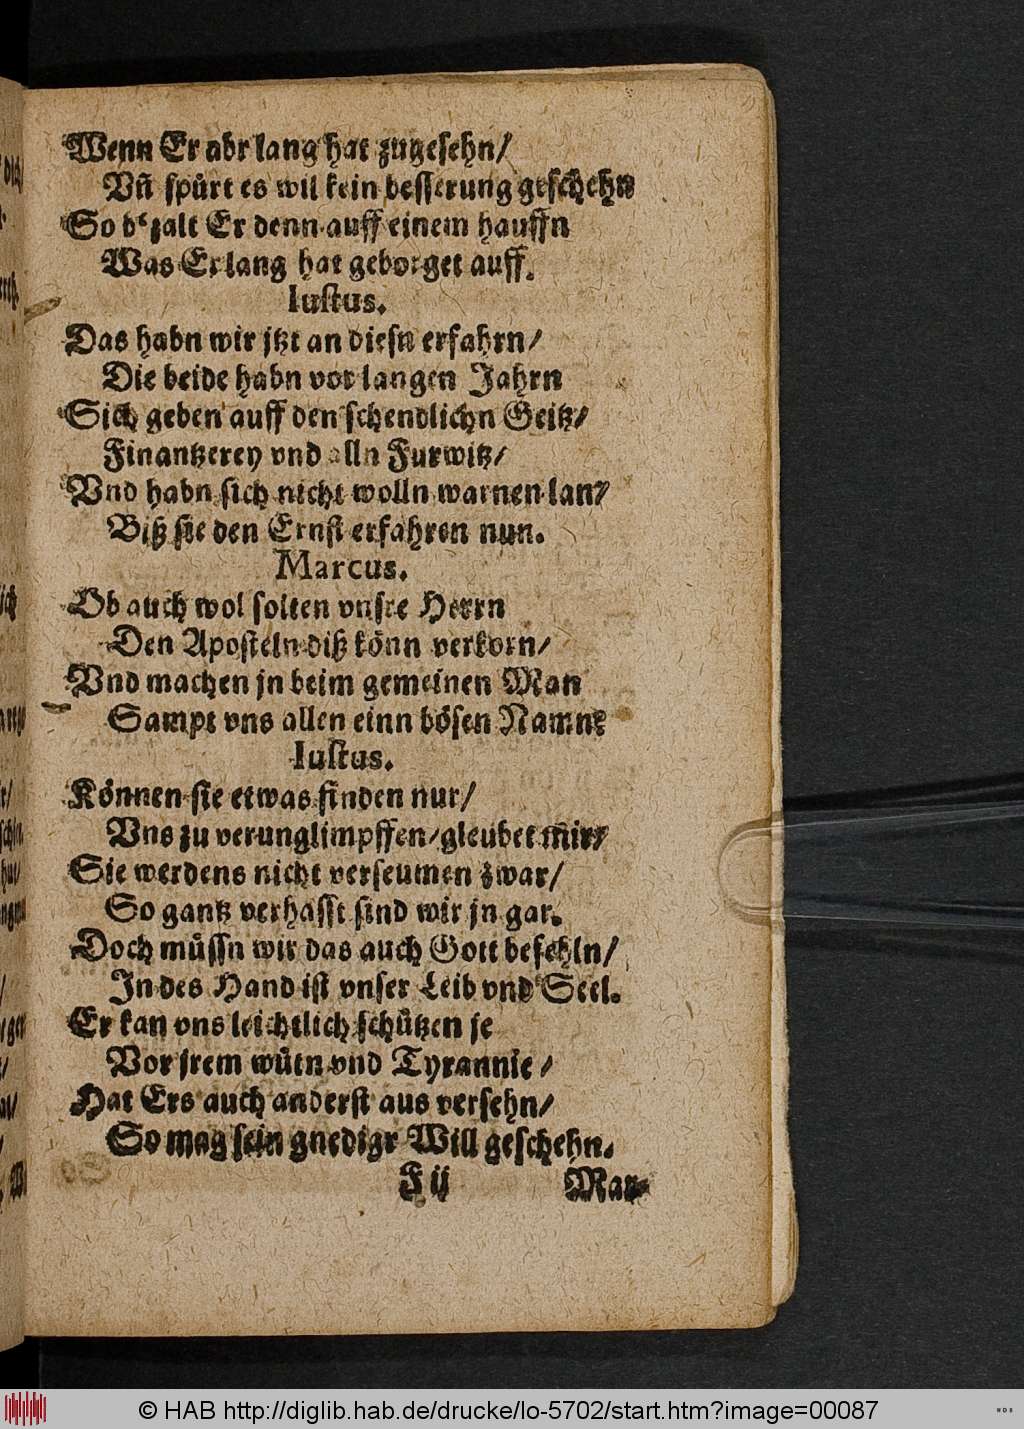 Wenn Er abr lang hat zugesehn/
Vñ spürt es wil kein besserung geschehn
So b'zalt Er denn auff einem hauffn
Was Er lang hat geborget auff.
Iustus.
Das habn wir jtzt an diesn erfahrn/
Die beide habn vor langen Jahrn
Sich geben auff den schendlichn Geitz/
Finantzerey vnd alln Furwitz/
Vnd habn sich nicht wolln warnen lan/
Biß sie den Ernst erfahren nun.
Marcus.
Ob auch wol solten vnsre Herrn
Den Aposteln diß könn verkorn/
Vnd machen jn beim gemeinen Man
Sampt vns allen einn bösen Namn?
Iustus.
Können sie etwas finden nur/
Vns zu verunglimpffen/gleubet mir/
Sie werdens nicht verseumen zwar/
So gantz verhasst sind wir jn gar.
Doch müssn wir das auch Gott befehln/
In des Hand ist vnser Leib vnd Seel.
Er kan vns leichtlich schützen je
Vor jrem wütn vnd Tyrannie/
Hat Ers auch anderst aus versehn/
So mag sein gnedigr Will geschehn.
F ij Mar-
© HAB http://diglib.hab.de/drucke/lo-5702/start.htm?image=00087